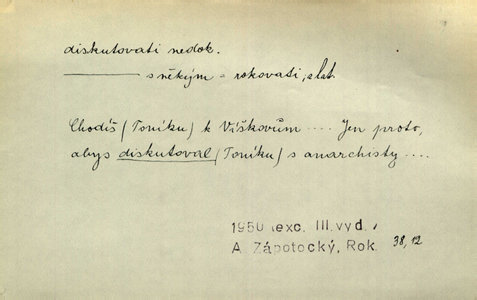 diskutovati nedok.
——— s někým = rokovati,
Chodíš (Toníku) k Viškovům .... Jen proto,
abys diskutoval (Toníku) s anarchisty ....
1950 (exc. III. vyd.)
A. Zápotocký, Rok. 38,12